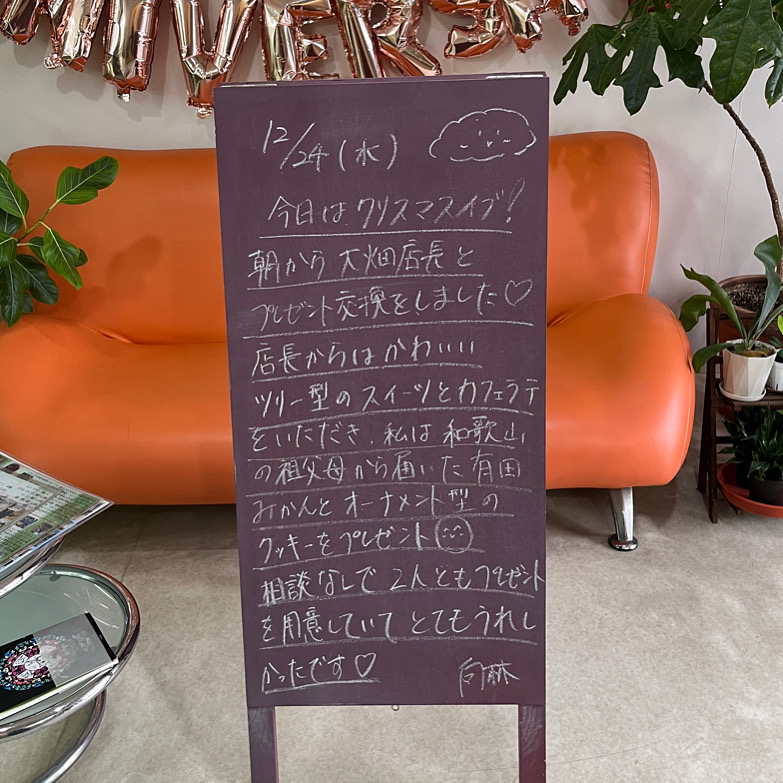 12/24(水)
今日はクリスマスイブ!
朝から大畑店長と
プレゼント交換をしました♡
店長からはかわいい
ツリー型のスイーツとカフェラテ
をいただき、私は和歌山
の祖父母から届いた有田
みかんとオーナメント型の
クッキーをプレゼント
相談なしで2人ともプレゼント
を用意していてとてもうれし
かったです♡